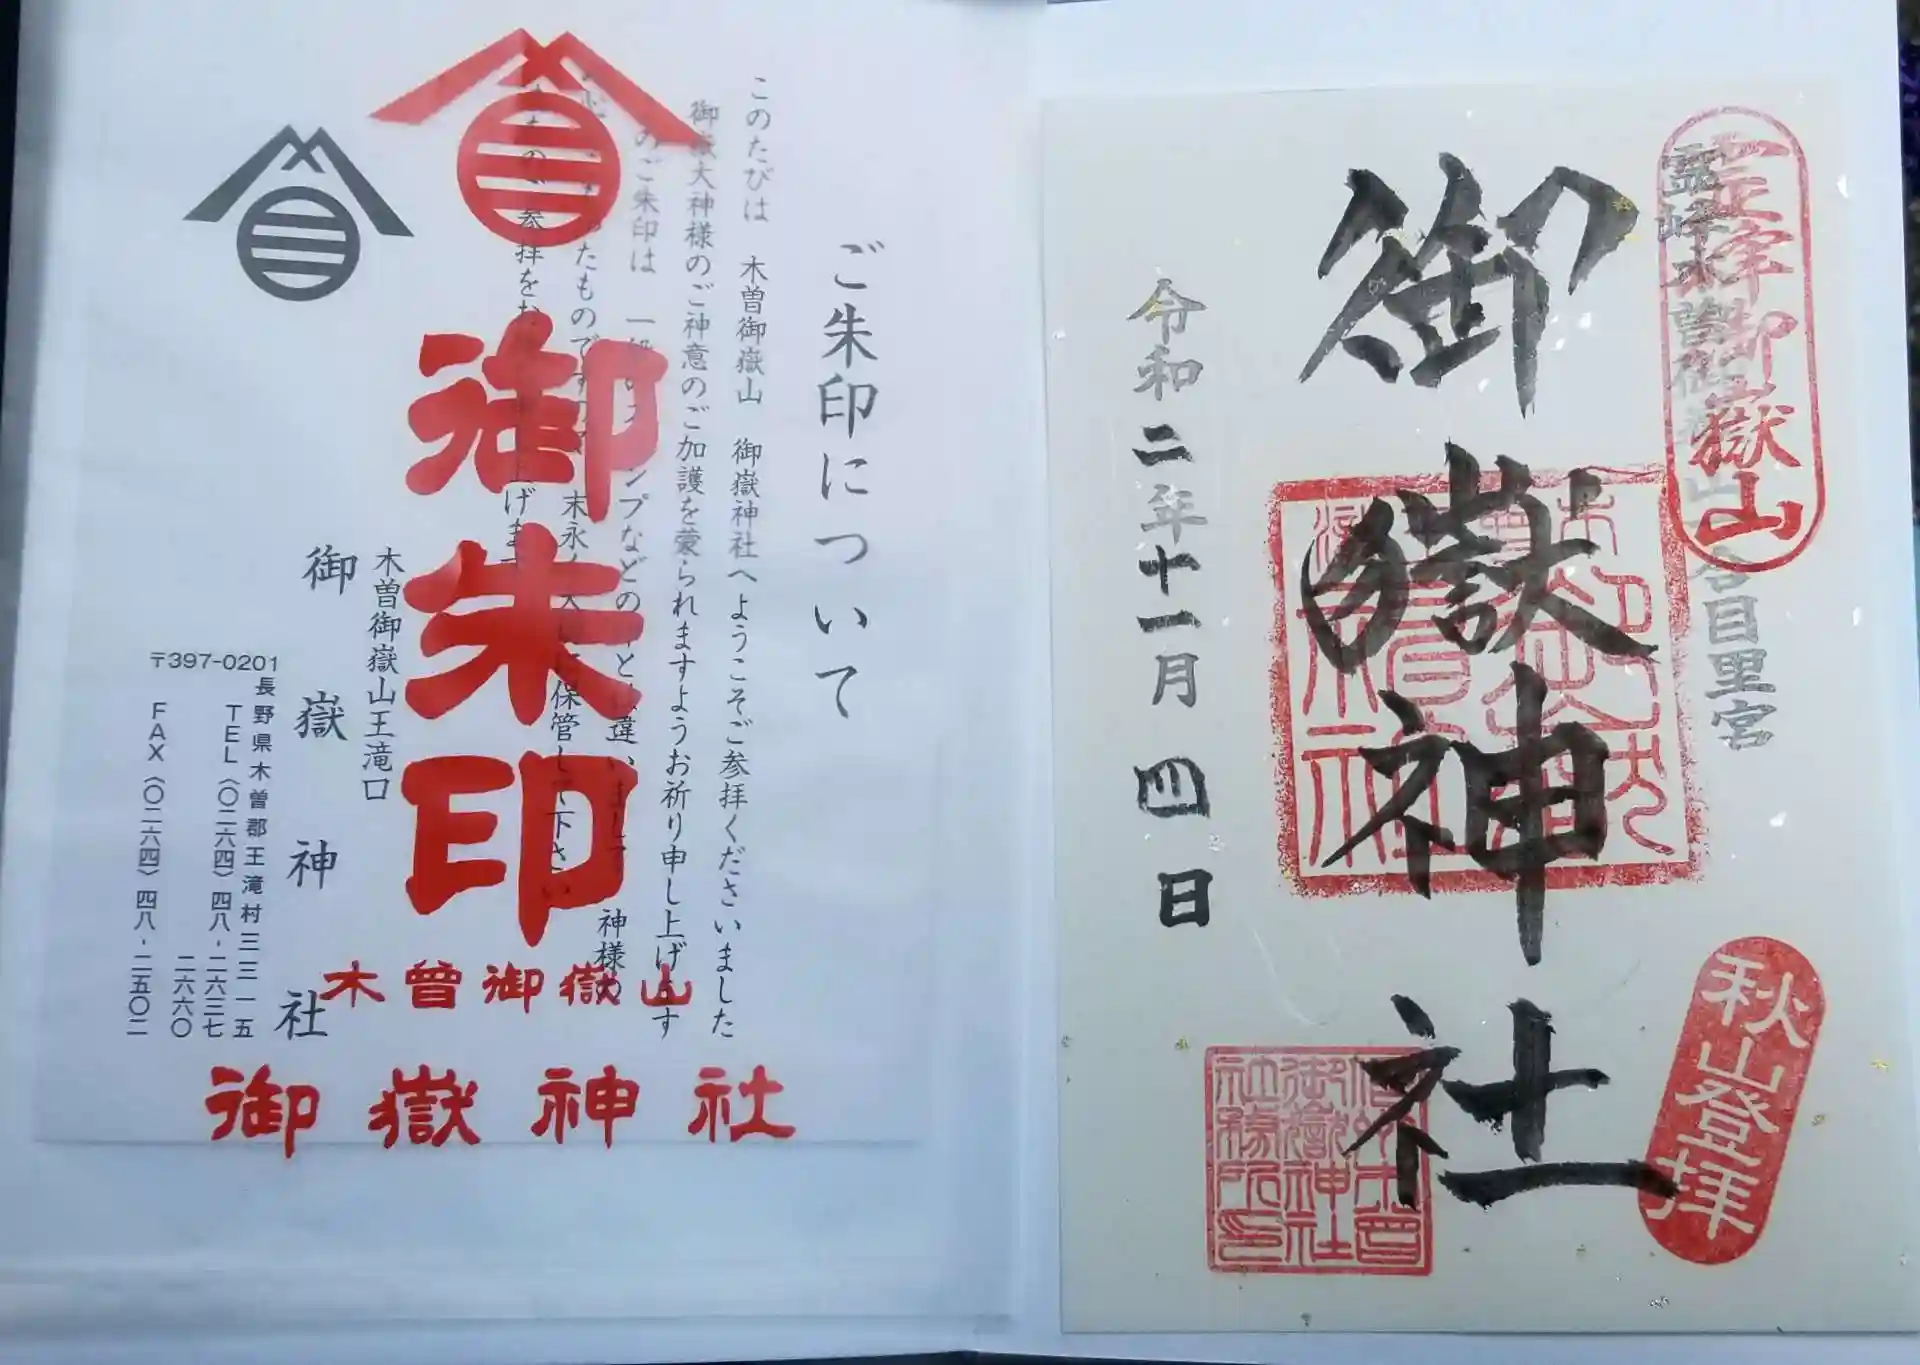 ご朱印について
このたびは 木曽御嶽山 御嶽神社へようこそご参拝くださいました
御嶽大神様のご神意のご加護を蒙られますようお祈り申し上げます
のご朱印は 一
プなどの
と
違いまして
神様の
たものです
末永
保管して下さい
参拝をお
げます
木曽御嶽山王滝口
御嶽神社
〒397-0201
長野県木曽郡王滝村三三一五
TEL(〇二六四)四八-二六三七
二六六〇
FAX(〇二六四)四八-二五〇二
御朱印
木曽御嶽山
御嶽神社
霊峰御嶽山
霊峰木曽御嶽山
合目里宮
御嶽神社
令和二年十一月四日
秋山登拝
木曽
御嶽神社
社務所印